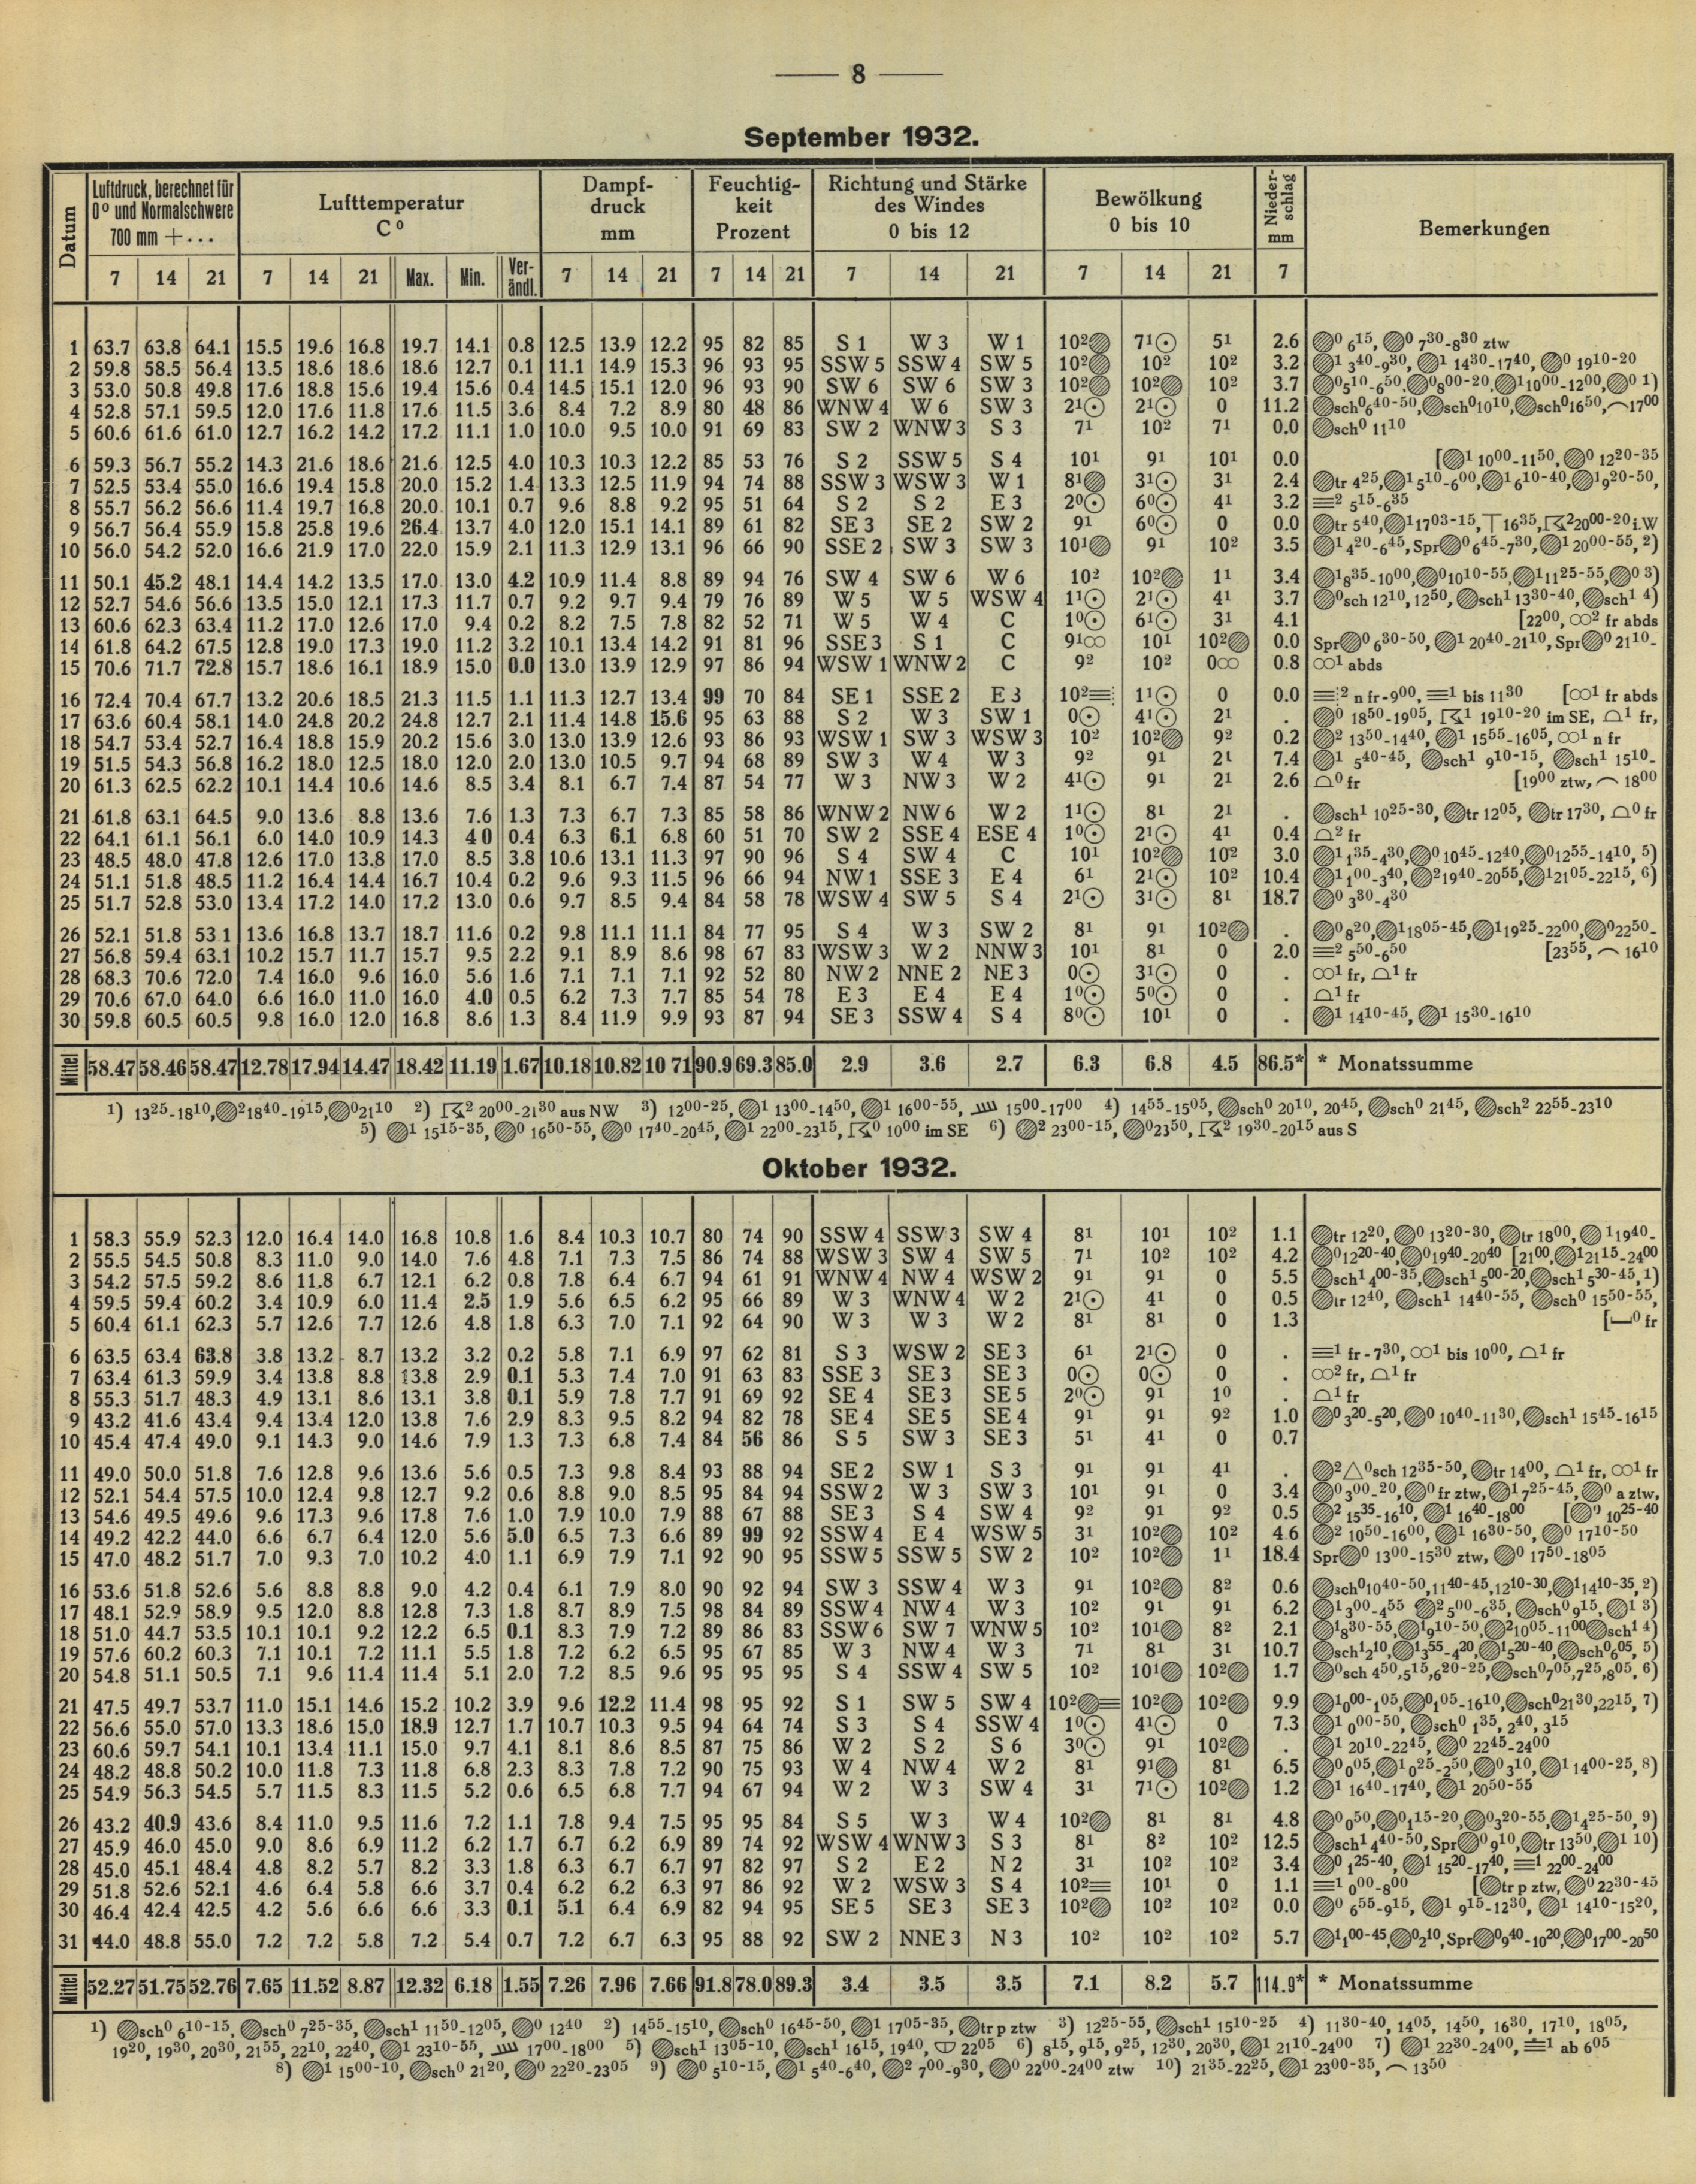 8
September 1932.
Datum | Luftdruck, berechnet für 0⁰ und Normalschwere 700 mm +... | Lufttemperatur C⁰ | Dampf-druck mm | Feuchtig-keit Prozent | Richtung und Stärke des Windes 0 bis 12 | Bewölkung 0 bis 10 | Nieder-schlag mm | Bemerkungen
7 14 21 7 14 21 Max. Min. Ver-ändl. 7 14 21 7 14 21 7 14 21 7 14 21 7
1 63.7 63.8 64.1 15.5 19.6 16.8 19.7 14.1 0.8 12.5 13.9 12.2 95 82 85 S 1 W 3 W 1 10² 7¹ 5¹ 2.6 ⁰ 6¹⁵, ⁰ 7³⁰-8³⁰ ztw
2 59.8 58.5 56.4 13.5 18.6 18.6 18.6 12.7 0.1 11.1 14.9 15.3 96 93 95 SSW 5 SSW 4 SW 5 10² 10² 10² 3.2 ¹ 3⁴⁰-9³⁰, ¹ 14³⁰-17⁴⁰, ⁰ 19¹⁰-20
3 53.0 50.8 49.8 17.6 18.8 15.6 19.4 15.6 0.4 14.5 15.1 12.0 96 93 90 SW 6 SW 6 SW 3 10² 10² 10² 3.7 ⁰5¹⁰-6⁵⁰, ⁰8⁰⁰-20, ¹10⁰⁰-12⁰⁰, ⁰ 1)
4 52.8 57.1 59.5 12.0 17.6 11.8 17.6 11.5 3.6 8.4 7.2 8.9 80 48 86 WNW 4 W 6 SW 3 2¹ 2¹ 0 11.2 sch⁰6⁴⁰-50, sch⁰10¹⁰, sch⁰16⁵⁰, ⌒17⁰⁰
5 60.6 61.6 61.0 12.7 16.2 14.2 17.2 11.1 1.0 10.0 9.5 10.0 91 69 83 SW 2 WNW 3 S 3 7¹ 10² 7¹ 0.0 sch⁰ 11¹⁰
6 59.3 56.7 55.2 14.3 21.6 18.6 21.6 12.5 4.0 10.3 10.3 12.2 85 53 76 S 2 SSW 5 S 4 10¹ 9¹ 10¹ 0.0 [¹ 10⁰⁰-11⁵⁰, ⁰ 12²⁰-35
7 52.5 53.4 55.0 16.6 19.4 15.8 20.0 15.2 1.4 13.3 12.5 11.9 94 74 88 SSW 3 WSW 3 W 1 8¹ 3¹ 3¹ 2.4 tr 4²⁵, ¹ 5¹⁰-6⁰⁰, ¹ 6¹⁰-40, ¹9²⁰-50,
8 55.7 56.2 56.6 11.4 19.7 16.8 20.0 10.1 0.7 9.6 8.8 9.2 95 51 64 S 2 S 2 E 3 2⁰ 6⁰ 4¹ 3.2 ≡² 5¹⁵-6³⁵
9 56.7 56.4 55.9 15.8 25.8 19.6 26.4 13.7 4.0 12.0 15.1 14.1 89 61 82 SE 3 SE 2 SW 2 9¹ 6⁰ 0 0.0 tr 5⁴⁰, ¹17⁰³-15, 16³⁵, ²20⁰⁰-20 i.W
10 56.0 54.2 52.0 16.6 21.9 17.0 22.0 15.9 2.1 11.3 12.9 13.1 96 66 90 SSE 2 SW 3 SW 3 10¹ 9¹ 10² 3.5 ¹ 4²⁰-6⁴⁵, Spr⁰ 6⁴⁵-7³⁰, ¹ 20⁰⁰-55, 2)
11 50.1 45.2 48.1 14.4 14.2 13.5 17.0 13.0 4.2 10.9 11.4 8.8 89 94 76 SW 4 SW 6 W 6 10² 10² 1¹ 3.4 ¹8³⁵-10⁰⁰, ⁰10¹⁰-55, ¹11²⁵-55, ⁰ 3)
12 52.7 54.6 56.6 13.5 15.0 12.1 17.3 11.7 0.7 9.2 9.7 9.4 79 76 89 W 5 W 5 WSW 4 1¹ 2¹ 4¹ 3.7 ⁰sch 12¹⁰, 12⁵⁰, sch¹ 13³⁰-40, sch¹ 4)
13 60.6 62.3 63.4 11.2 17.0 12.6 17.0 9.4 0.2 8.2 7.5 7.8 82 52 71 W 5 W 4 C 1⁰ 6¹ 3¹ 4.1 [22⁰⁰, ∞² fr abds
14 61.8 64.2 67.5 12.8 19.0 17.3 19.0 11.2 3.2 10.1 13.4 14.2 91 81 96 SSE 3 S 1 C 9¹∞ 10¹ 10² 0.0 Spr⁰ 6³⁰-50, ¹ 20⁴⁰-21¹⁰, Spr⁰ 21¹⁰-
15 70.6 71.7 72.8 15.7 18.6 16.1 18.9 15.0 0.0 13.0 13.9 12.9 97 86 94 WSW 1 WNW 2 C 9² 10² 0∞ 0.8 ∞¹ abds
16 72.4 70.4 67.7 13.2 20.6 18.5 21.3 11.5 1.1 11.3 12.7 13.4 99 70 84 SE 1 SSE 2 E 3 10²≡ 1¹ 0 0.0 ≡² n fr-9⁰⁰, ≡¹ bis 11³⁰ [∞¹ fr abds
17 63.6 60.4 58.1 14.0 24.8 20.2 24.8 12.7 2.1 11.4 14.8 15.6 95 63 88 S 2 W 3 SW 1 0 4¹ 2¹ . ⁰ 18⁵⁰-19⁰⁵, ¹ 19¹⁰-20 im SE, ¹ fr,
18 54.7 53.4 52.7 16.4 18.8 15.9 20.2 15.6 3.0 13.0 13.9 12.6 93 86 93 WSW 1 SW 3 WSW 3 10² 10² 9² 0.2 ² 13⁵⁰-14⁴⁰, ¹ 15⁵⁵-16⁰⁵, ∞¹ n fr
19 51.5 54.3 56.8 16.2 18.0 12.5 18.0 12.0 2.0 13.0 10.5 9.7 94 68 89 SW 3 W 4 W 3 9² 9¹ 2¹ 7.4 ¹ 5⁴⁰-45, sch¹ 9¹⁰-15, sch¹ 15¹⁰-
20 61.3 62.5 62.2 10.1 14.4 10.6 14.6 8.5 3.4 8.1 6.7 7.4 87 54 77 W 3 NW 3 W 2 4¹ 9¹ 2¹ 2.6 ⁰ fr [19⁰⁰ ztw, ⌒ 18⁰⁰
21 61.8 63.1 64.5 9.0 13.6 8.8 13.6 7.6 1.3 7.3 6.7 7.3 85 58 86 WNW 2 NW 6 W 2 1¹ 8¹ 2¹ . sch¹ 10²⁵-30, tr 12⁰⁵, tr 17³⁰, ⁰ fr
22 64.1 61.1 56.1 6.0 14.0 10.9 14.3 4 0 0.4 6.3 6.1 6.8 60 51 70 SW 2 SSE 4 ESE 4 1⁰ 2¹ 4¹ 0.4 ² fr
23 48.5 48.0 47.8 12.6 17.0 13.8 17.0 8.5 3.8 10.6 13.1 11.3 97 90 96 S 4 SW 4 C 10¹ 10² 10² 3.0 ¹1³⁵-4³⁰, ⁰ 10⁴⁵-12⁴⁰, ⁰12⁵⁵-14¹⁰, 5)
24 51.1 51.8 48.5 11.2 16.4 14.4 16.7 10.4 0.2 9.6 9.3 11.5 96 66 94 NW 1 SSE 3 E 4 6¹ 2¹ 10² 10.4 ¹1⁰⁰-3⁴⁰, ²19⁴⁰-20⁵⁵, ¹21⁰⁵-22¹⁵, 6)
25 51.7 52.8 53.0 13.4 17.2 14.0 17.2 13.0 0.6 9.7 8.5 9.4 84 58 78 WSW 4 SW 5 S 4 2¹ 3¹ 8¹ 18.7 ⁰ 3³⁰-4³⁰
26 52.1 51.8 53 1 13.6 16.8 13.7 18.7 11.6 0.2 9.8 11.1 11.1 84 77 95 S 4 W 3 SW 2 8¹ 9¹ 10² . ⁰8²⁰, ¹18⁰⁵-45, ¹19²⁵-22⁰⁰, ⁰22⁵⁰-
27 56.8 59.4 63.1 10.2 15.7 11.7 15.7 9.5 2.2 9.1 8.9 8.6 98 67 83 WSW 3 W 2 NNW 3 10¹ 8¹ 0 2.0 ≡² 5⁵⁰-6⁵⁰ [23⁵⁵, ⌒ 16¹⁰
28 68.3 70.6 72.0 7.4 16.0 9.6 16.0 5.6 1.6 7.1 7.1 7.1 92 52 80 NW 2 NNE 2 NE 3 0 3¹ 0 . ∞¹ fr, ¹ fr
29 70.6 67.0 64.0 6.6 16.0 11.0 16.0 4.0 0.5 6.2 7.3 7.7 85 54 78 E 3 E 4 E 4 1⁰ 5⁰ 0 . ¹ fr
30 59.8 60.5 60.5 9.8 16.0 12.0 16.8 8.6 1.3 8.4 11.9 9.9 93 87 94 SE 3 SSW 4 S 4 8⁰ 10¹ 0 . ¹ 14¹⁰-45, ¹ 15³⁰-16¹⁰
Mittel 58.47 58.46 58.47 12.78 17.94 14.47 18.42 11.19 1.67 10.18 10.82 10 71 90.9 69.3 85.0 2.9 3.6 2.7 6.3 6.8 4.5 86.5* * Monatssumme
1) 13²⁵-18¹⁰, ²18⁴⁰-19¹⁵, ⁰21¹⁰ 2) ² 20⁰⁰-21³⁰ aus NW 3) 12⁰⁰-25, ¹ 13⁰⁰-14⁵⁰, ¹ 16⁰⁰-55, 15⁰⁰-17⁰⁰ 4) 14⁵⁵-15⁰⁵, sch⁰ 20¹⁰, 20⁴⁵, sch⁰ 21⁴⁵, sch² 22⁵⁵-23¹⁰
5) ¹ 15¹⁵-35, ⁰ 16⁵⁰-55, ⁰ 17⁴⁰-20⁴⁵, ¹ 22⁰⁰-23¹⁵, ⁰ 10⁰⁰ im SE 6) ² 23⁰⁰-15, ⁰23⁵⁰, ² 19³⁰-20¹⁵ aus S
Oktober 1932.
1 58.3 55.9 52.3 12.0 16.4 14.0 16.8 10.8 1.6 8.4 10.3 10.7 80 74 90 SSW 4 SSW 3 SW 4 8¹ 10¹ 10² 1.1 tr 12²⁰, ⁰ 13²⁰-30, tr 18⁰⁰, ¹19⁴⁰-
2 55.5 54.5 50.8 8.3 11.0 9.0 14.0 7.6 4.8 7.1 7.3 7.5 86 74 88 WSW 3 SW 4 SW 5 7¹ 10² 10² 4.2 ⁰12²⁰-40, ⁰19⁴⁰-20⁴⁰ [21⁰⁰, ¹21¹⁵-24⁰⁰
3 54.2 57.5 59.2 8.6 11.8 6.7 12.1 6.2 0.8 7.8 6.4 6.7 94 61 91 WNW 4 NW 4 WSW 2 9¹ 9¹ 0 5.5 sch¹ 4⁰⁰-35, sch¹ 5⁰⁰-20, sch¹ 5³⁰-45, 1)
4 59.5 59.4 60.2 3.4 10.9 6.0 11.4 2.5 1.9 5.6 6.5 6.2 95 66 89 W 3 WNW 4 W 2 2¹ 4¹ 0 0.5 tr 12⁴⁰, sch¹ 14⁴⁰-55, sch⁰ 15⁵⁰-55,
5 60.4 61.1 62.3 5.7 12.6 7.7 12.6 4.8 1.8 6.3 7.0 7.1 92 64 90 W 3 W 3 W 2 8¹ 8¹ 0 1.3 [⁰ fr
6 63.5 63.4 63.8 3.8 13.2 8.7 13.2 3.2 0.2 5.8 7.1 6.9 97 62 81 S 3 WSW 2 SE 3 6¹ 2¹ 0 . ≡¹ fr-7³⁰, ∞¹ bis 10⁰⁰, ¹ fr
7 63.4 61.3 59.9 3.4 13.8 8.8 13.8 2.9 0.1 5.3 7.4 7.0 91 63 83 SSE 3 SE 3 SE 3 0 0 0 . ∞² fr, ¹ fr
8 55.3 51.7 48.3 4.9 13.1 8.6 13.1 3.8 0.1 5.9 7.8 7.7 91 69 92 SE 4 SE 3 SE 5 2⁰ 9¹ 1⁰ . ¹ fr
9 43.2 41.6 43.4 9.4 13.4 12.0 13.8 7.6 2.9 8.3 9.5 8.2 94 82 78 SE 4 SE 5 SE 4 9¹ 9¹ 9² 1.0 ⁰ 3²⁰-5²⁰, ⁰ 10⁴⁰-11³⁰, sch¹ 15⁴⁵-16¹⁵
10 45.4 47.4 49.0 9.1 14.3 9.0 14.6 7.9 1.3 7.3 6.8 7.4 84 56 86 S 5 SW 3 SE 3 5¹ 4¹ 0 0.7
11 49.0 50.0 51.8 7.6 12.8 9.6 13.6 5.6 0.5 7.3 9.8 8.4 93 88 94 SE 2 SW 1 S 3 9¹ 9¹ 4¹ . ²△⁰sch 12³⁵-50, tr 14⁰⁰, ¹ fr, ∞¹ fr
12 52.1 54.4 57.5 10.0 12.4 9.8 12.7 9.2 0.6 8.8 9.0 8.5 95 84 94 SSW 2 W 3 SW 3 10¹ 9¹ 0 3.4 ⁰3⁰⁰-20, ⁰ fr ztw, ¹ 7²⁵-45, ⁰ a ztw,
13 54.6 49.5 49.6 9.6 17.3 9.6 17.8 7.6 1.0 7.9 10.0 7.9 88 67 88 SE 3 S 4 SW 4 9² 9¹ 9² 0.5 ² 15³⁵-16¹⁰, ¹ 16⁴⁰-18⁰⁰ [⁰ 10²⁵-40
14 49.2 42.2 44.0 6.6 6.7 6.4 12.0 5.6 5.0 6.5 7.3 6.6 89 99 92 SSW 4 E 4 WSW 5 3¹ 10² 10² 4.6 ² 10⁵⁰-16⁰⁰, ¹ 16³⁰-50, ⁰ 17¹⁰-50
15 47.0 48.2 51.7 7.0 9.3 7.0 10.2 4.0 1.1 6.9 7.9 7.1 92 90 95 SSW 5 SSW 5 SW 2 10² 10² 1¹ 18.4 Spr⁰ 13⁰⁰-15³⁰ ztw, ⁰ 17⁵⁰-18⁰⁵
16 53.6 51.8 52.6 5.6 8.8 8.8 9.0 4.2 0.4 6.1 7.9 8.0 90 92 94 SW 3 SSW 4 W 3 9¹ 10² 8² 0.6 sch⁰10⁴⁰-50, 11⁴⁰-45, 12¹⁰-30, ¹14¹⁰-35, 2)
17 48.1 52.9 58.9 9.5 12.0 8.8 12.8 7.3 1.8 8.7 8.9 7.5 98 84 89 SSW 4 NW 4 W 3 10² 9¹ 9¹ 6.2 ¹3⁰⁰-4⁵⁵ ²5⁰⁰-6³⁵, sch⁰ 9¹⁵, ¹ 3)
18 51.0 44.7 53.5 10.1 10.1 9.2 12.2 6.5 0.1 8.3 7.9 7.2 89 86 83 SSW 6 SW 7 WNW 5 10² 10¹ 8² 2.1 ¹8³⁰-55, ¹9¹⁰-50, ²10⁰⁵-11⁰⁰ sch¹ 4)
19 57.6 60.2 60.3 7.1 10.1 7.2 11.1 5.5 1.8 7.2 6.2 6.5 95 67 85 W 3 NW 4 W 3 7¹ 8¹ 3¹ 10.7 sch¹2¹⁰, ¹3⁵⁵-4²⁰, ¹5²⁰-40, sch⁰6⁰⁵, 5)
20 54.8 51.1 50.5 7.1 9.6 11.4 11.4 5.1 2.0 7.2 8.5 9.6 95 95 95 S 4 SSW 4 SW 5 10² 10¹ 10² 1.7 ⁰sch 4⁵⁰, 5¹⁵, 6²⁰-25, sch⁰7⁰⁵, 7²⁵, 8⁰⁵, 6)
21 47.5 49.7 53.7 11.0 15.1 14.6 15.2 10.2 3.9 9.6 12.2 11.4 98 95 92 S 1 SW 5 SW 4 10²≡ 10² 10² 9.9 ¹0⁰⁰-1⁰⁵, ⁰1⁰⁵-16¹⁰, sch⁰21³⁰, 22¹⁵, 7)
22 56.6 55.0 57.0 13.3 18.6 15.0 18.9 12.7 1.7 10.7 10.3 9.5 94 64 74 S 3 S 4 SSW 4 1⁰ 4¹ 0 7.3 ¹ 0⁰⁰-50, sch⁰ 1³⁵, 2⁴⁰, 3¹⁵
23 60.6 59.7 54.1 10.1 13.4 11.1 15.0 9.7 4.1 8.1 8.6 8.5 87 75 86 W 2 S 2 S 6 3⁰ 9¹ 10² . ¹ 20¹⁰-22⁴⁵, ⁰ 22⁴⁵-24⁰⁰
24 48.2 48.8 50.2 10.0 11.8 7.3 11.8 6.8 2.3 8.3 7.8 7.2 90 75 93 W 4 NW 4 W 2 8¹ 9¹ 8¹ 6.5 ⁰0⁰⁵, ¹0²⁵-2⁵⁰, ⁰3¹⁰, ¹ 14⁰⁰-25, 8)
25 54.9 56.3 54.5 5.7 11.5 8.3 11.5 5.2 0.6 6.5 6.8 7.7 94 67 94 W 2 W 3 SW 4 3¹ 7¹ 10² 1.2 ¹ 16⁴⁰-17⁴⁰, ¹ 20⁵⁰-55
26 43.2 40.9 43.6 8.4 11.0 9.5 11.6 7.2 1.1 7.8 9.4 7.5 95 95 84 S 5 W 3 W 4 10² 8¹ 8¹ 4.8 ⁰0⁵⁰, ⁰1¹⁵-20, ⁰3²⁰-55, ¹4²⁵-50, 9)
27 45.9 46.0 45.0 9.0 8.6 6.9 11.2 6.2 1.7 6.7 6.2 6.9 89 74 92 WSW 4 WNW 3 S 3 8¹ 8² 10² 12.5 sch¹4⁴⁰-50, Spr⁰ 9¹⁰, tr 13⁵⁰, ¹ 10)
28 45.0 45.1 48.4 4.8 8.2 5.7 8.2 3.3 1.8 6.3 6.7 6.7 97 82 97 S 2 E 2 N 2 3¹ 10² 10² 3.4 ⁰ 1²⁵-40, ¹ 15²⁰-17⁴⁰, ≡¹ 22⁰⁰-24⁰⁰
29 51.8 52.6 52.1 4.6 6.4 5.8 6.6 3.7 0.4 6.2 6.2 6.3 97 86 92 W 2 WSW 3 S 4 10²≡ 10¹ 0 1.1 ≡¹ 0⁰⁰-8⁰⁰ [tr p ztw, ⁰ 22³⁰-45
30 46.4 42.4 42.5 4.2 5.6 6.6 6.6 3.3 0.1 5.1 6.4 6.9 82 94 95 SE 5 SE 3 SE 3 10² 10² 10² 0.0 ⁰ 6⁵⁵-9¹⁵, ¹ 9¹⁵-12³⁰, ¹ 14¹⁰-15²⁰,
31 44.0 48.8 55.0 7.2 7.2 5.8 7.2 5.4 0.7 7.2 6.7 6.3 95 88 92 SW 2 NNE 3 N 3 10² 10² 10² 5.7 ¹1⁰⁰-45, ⁰2¹⁰, Spr⁰9⁴⁰-10²⁰, ⁰17⁰⁰-20⁵⁰
Mittel 52.27 51.75 52.76 7.65 11.52 8.87 12.32 6.18 1.55 7.26 7.96 7.66 91.8 78.0 89.3 3.4 3.5 3.5 7.1 8.2 5.7 114.9* * Monatssumme
1) sch⁰ 6¹⁰-15, sch⁰ 7²⁵-35, sch¹ 11⁵⁰-12⁰⁵, ⁰ 12⁴⁰ 2) 14⁵⁵-15¹⁰, sch⁰ 16⁴⁵-50, ¹ 17⁰⁵-35, tr p ztw 3) 12²⁵-55, sch¹ 15¹⁰-25 4) 11³⁰-40, 14⁰⁵, 14⁵⁰, 16³⁰, 17¹⁰, 18⁰⁵,
19²⁰, 19³⁰, 20³⁰, 21⁵⁵, 22¹⁰, 22⁴⁰, ¹ 23¹⁰-55, 17⁰⁰-18⁰⁰ 5) sch¹ 13⁰⁵-10, sch¹ 16¹⁵, 19⁴⁰, 22⁰⁵ 6) 8¹⁵, 9¹⁵, 9²⁵, 12³⁰, 20³⁰, ¹ 21¹⁰-24⁰⁰ 7) ¹ 22³⁰-24⁰⁰, ≡¹ ab 6⁰⁵
8) ¹ 15⁰⁰-10, sch⁰ 21²⁰, ⁰ 22²⁰-23⁰⁵ 9) ⁰ 5¹⁰-15, ¹ 5⁴⁰-6⁴⁰, ² 7⁰⁰-9³⁰, ⁰ 22⁰⁰-24⁰⁰ ztw 10) 21³⁵-22²⁵, ¹ 23⁰⁰-35, ⌒ 13⁵⁰